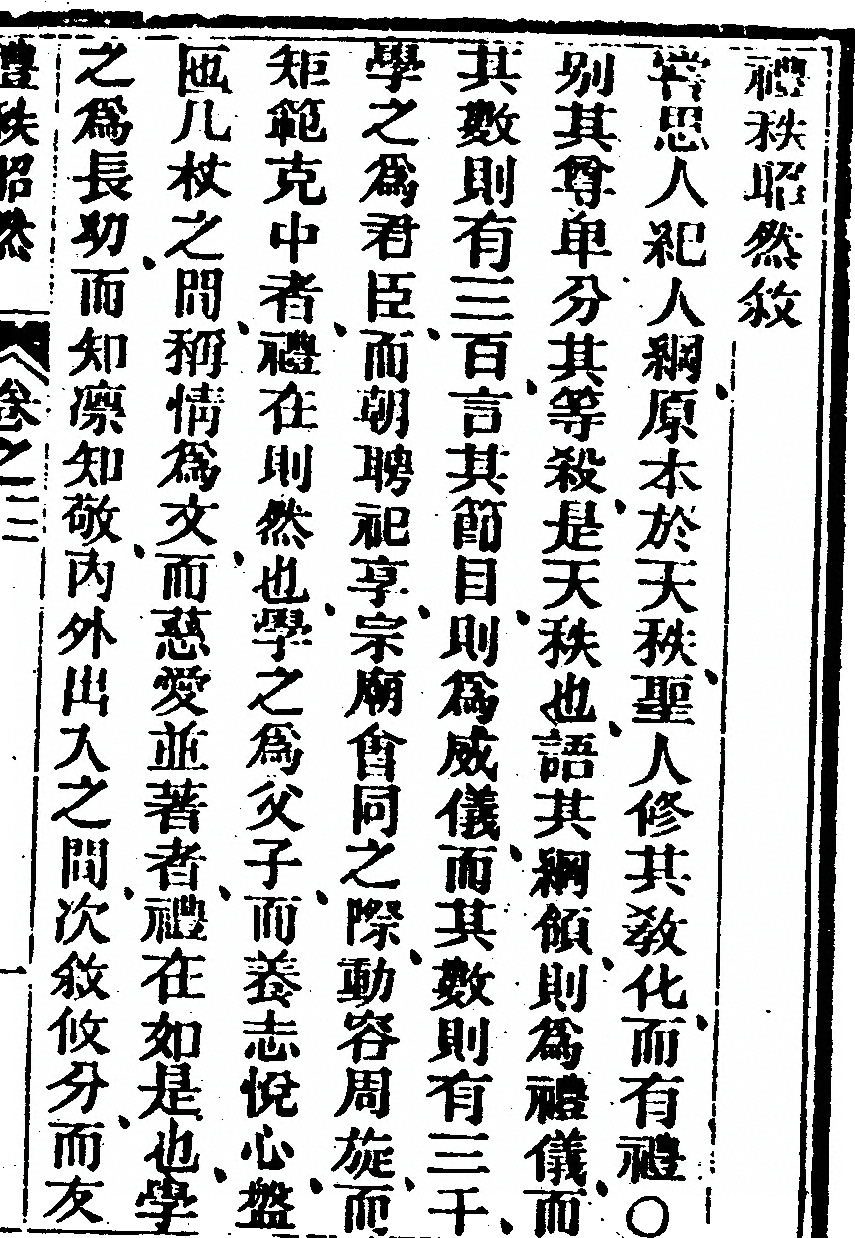 禮秩昭然敘
嘗思人紀人綱原本於天秩聖人修其敎化而有禮〇
别其尊卑分其等殺是天秩也語其綱領則爲禮儀而
其數則有三百言其節目則爲威儀而其數則有三千
學之爲君臣而朝聘祀享宗廟會同之際動容周旋而
矩範克中者禮在則然也學之爲父子而養志悅心盤
匜几杖之間稱情爲文而慈愛並著者禮在如是也學
之爲長幼而知凛知敬内外出入之間次敘攸分而友
禮秩昭然 卷之三 一